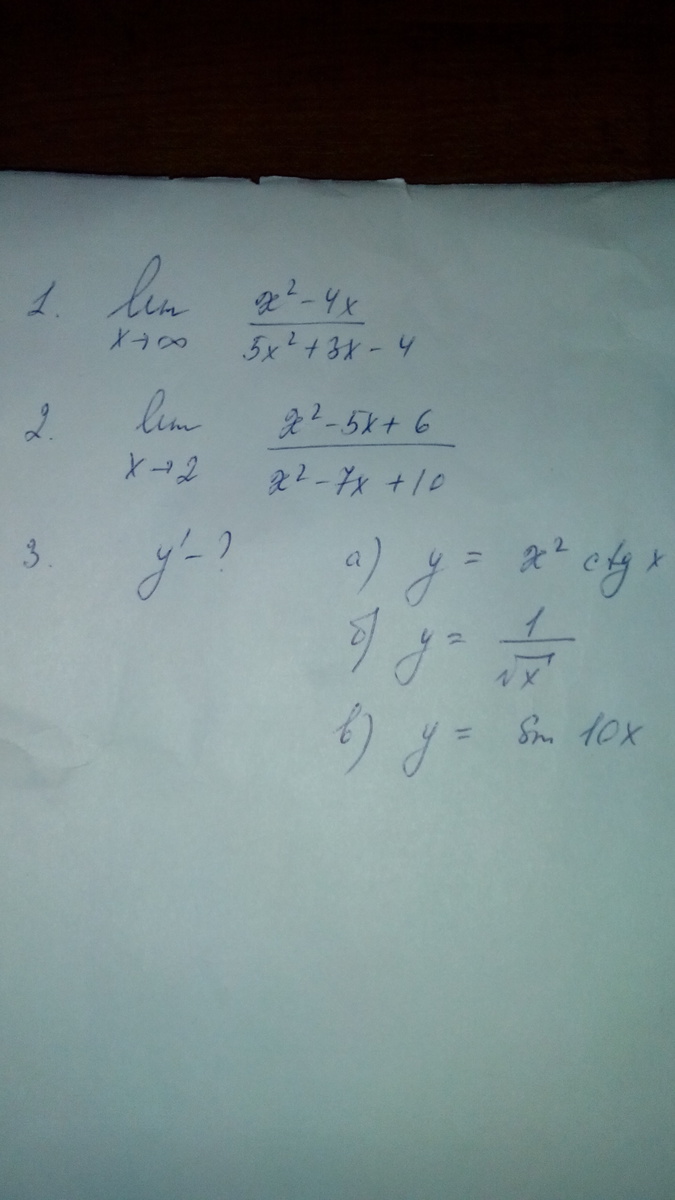 1. lim x→∞ (x² - 4x)/(5x² + 3x - 4)
2. lim x→2 (x² - 5x + 6)/(x² - 7x + 10)
3. y' - ? а) y = x² ctg x
б) y = 1/√x
в) y = sin 10x